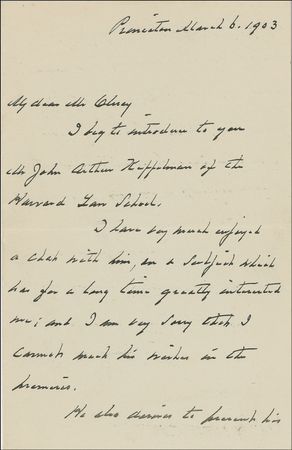 Princeton March 6. 1903
My dear Mr Olney
I beg to introduce to you
Mr John Arthur of the
Harvard Law School.
I have very much enjoyed
a chat with him, on a subject which
has for a long time greatly interested
me; and I am very sorry that I
cannot his wishes in the
premises.
He also desires to present his